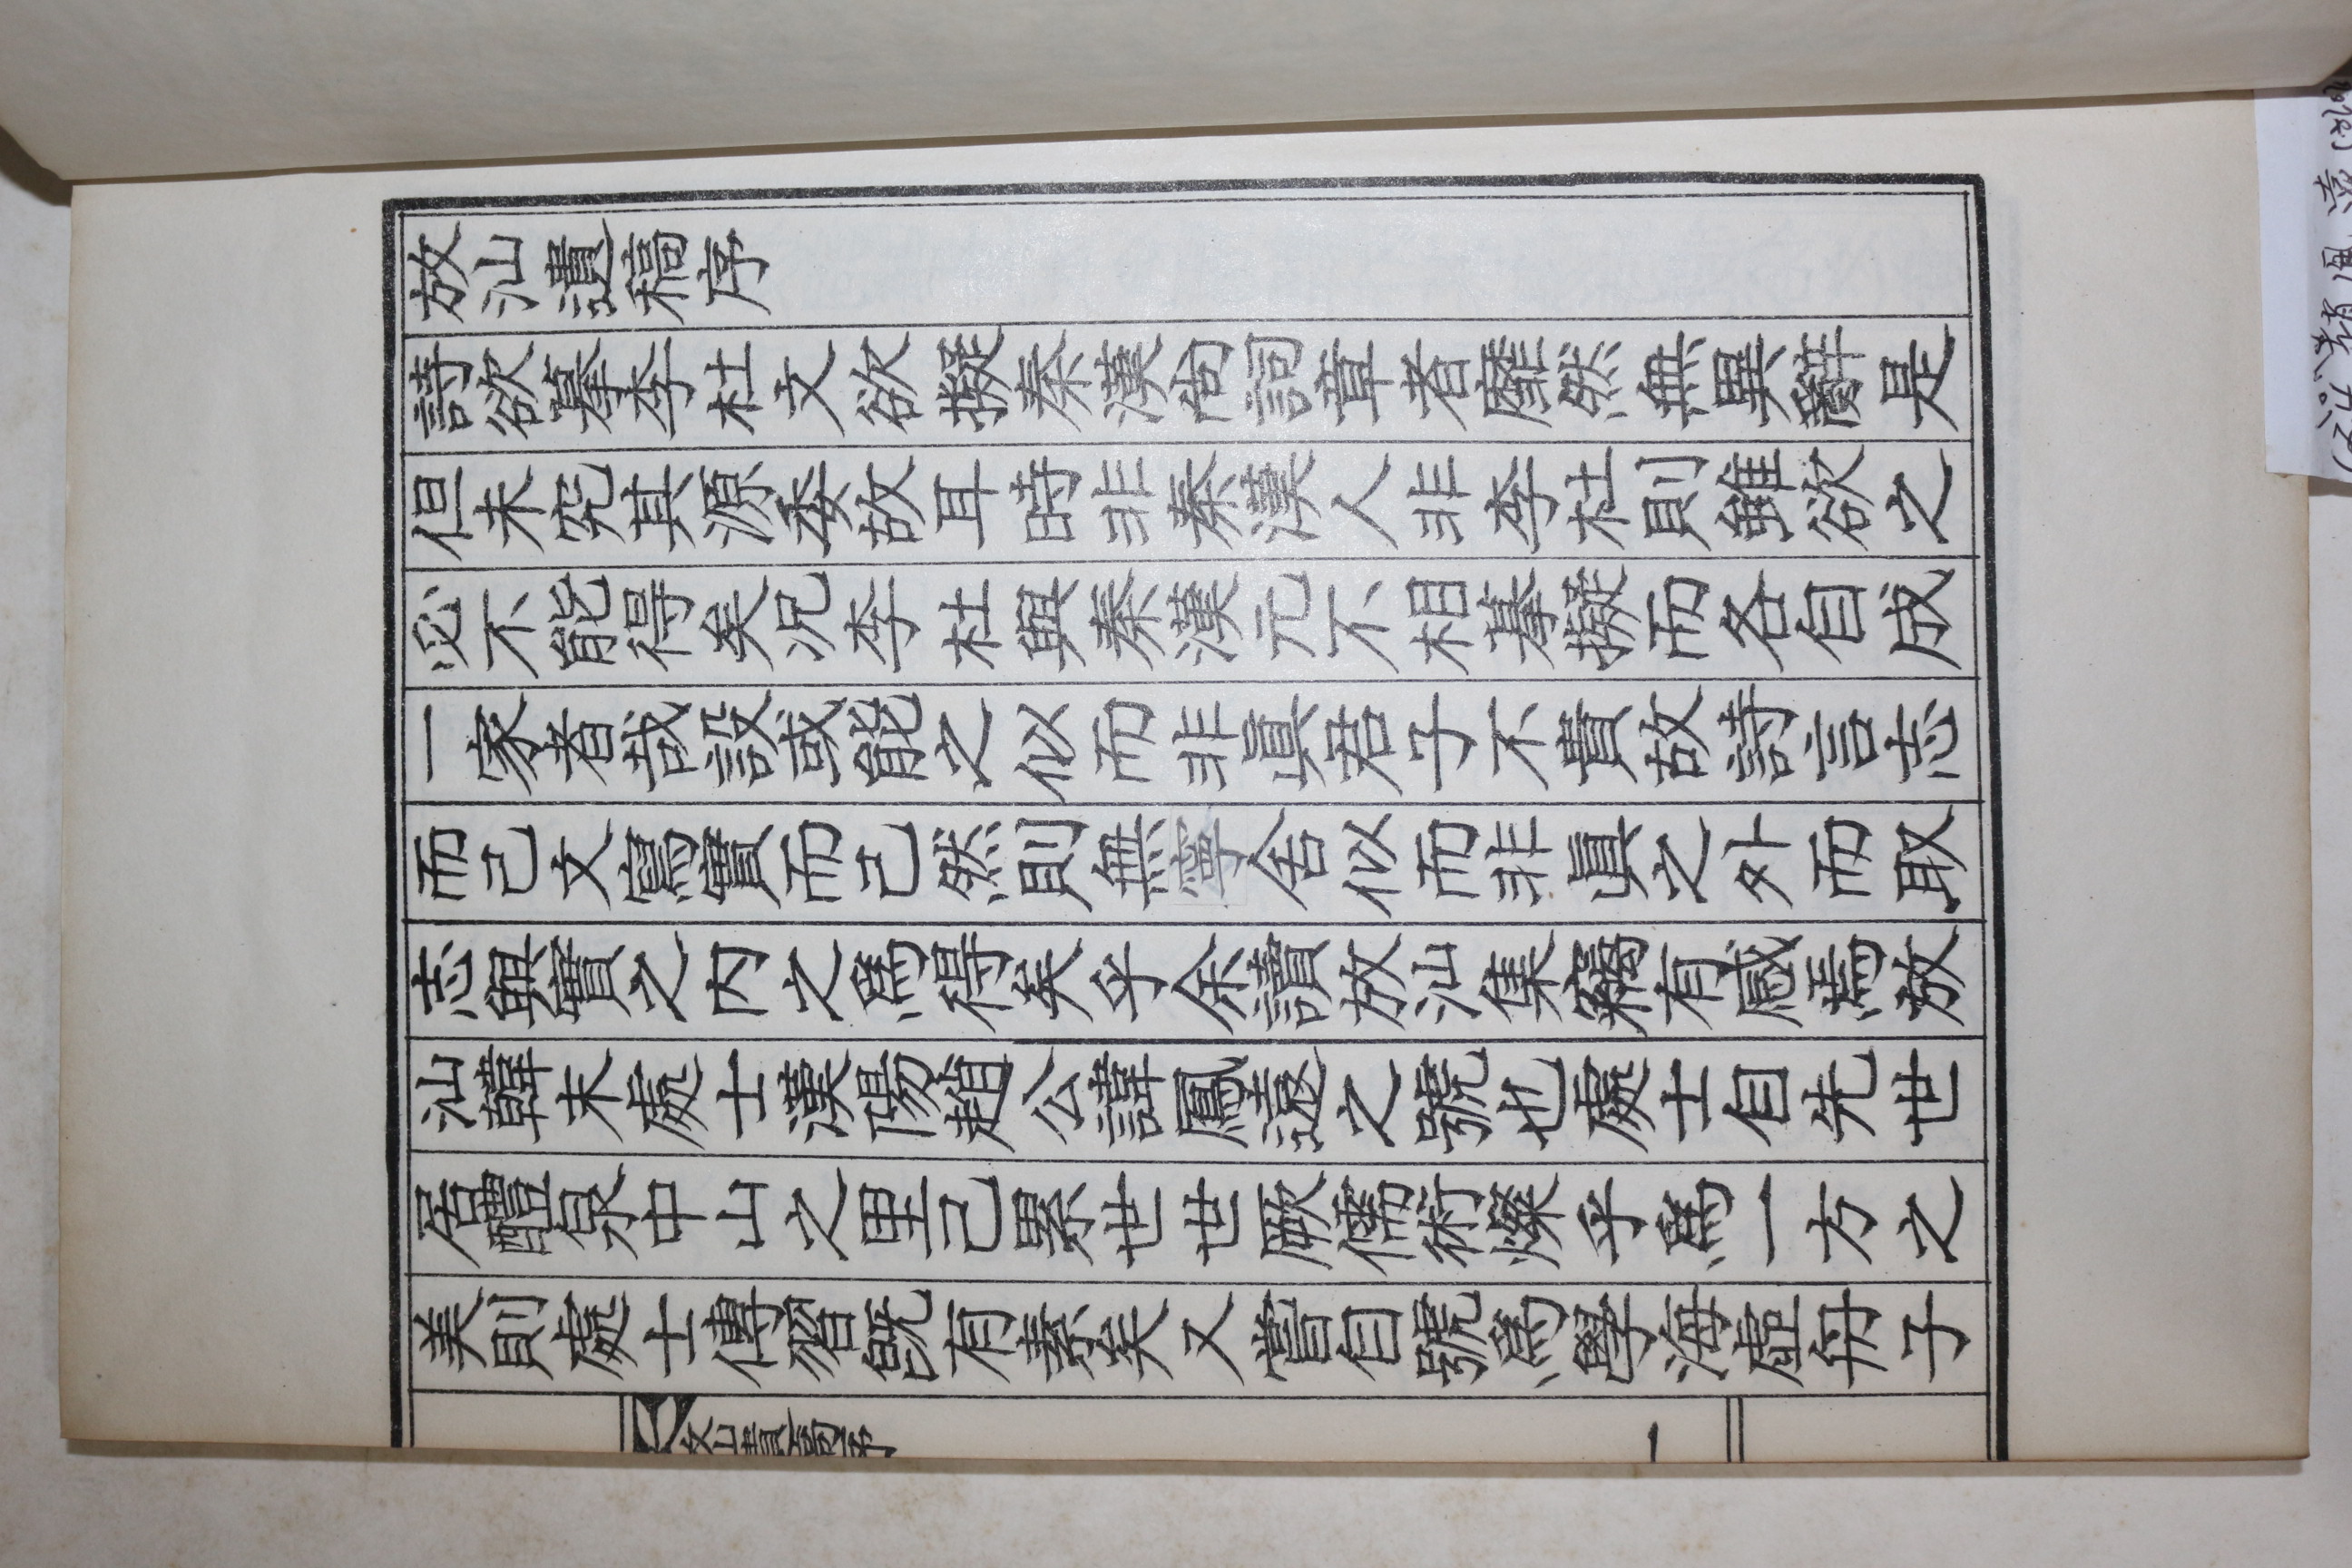 放汕遺稿序
詩欲摹李杜文欲擬秦漢尙詞章者靡然無異辭是
但未究其源委故耳時非秦漢人非李杜則雖欲之
必不能得矣况李杜與秦漢元不相摹擬而各自成
一家者哉設或能之似而非眞君子不貴故詩言志
而己文寫實而己然則無寧舍似而非眞之外而取
志與實之內之爲得矣乎余讀放汕集竊有感焉放
汕韓末處士漢陽趙公諱鳳遠之號也處士自先世
居醴泉中山之里己累世世厥儒術燦乎爲一方之
美則處士傳習旣有素矣又嘗自號爲學海虛舟子
一